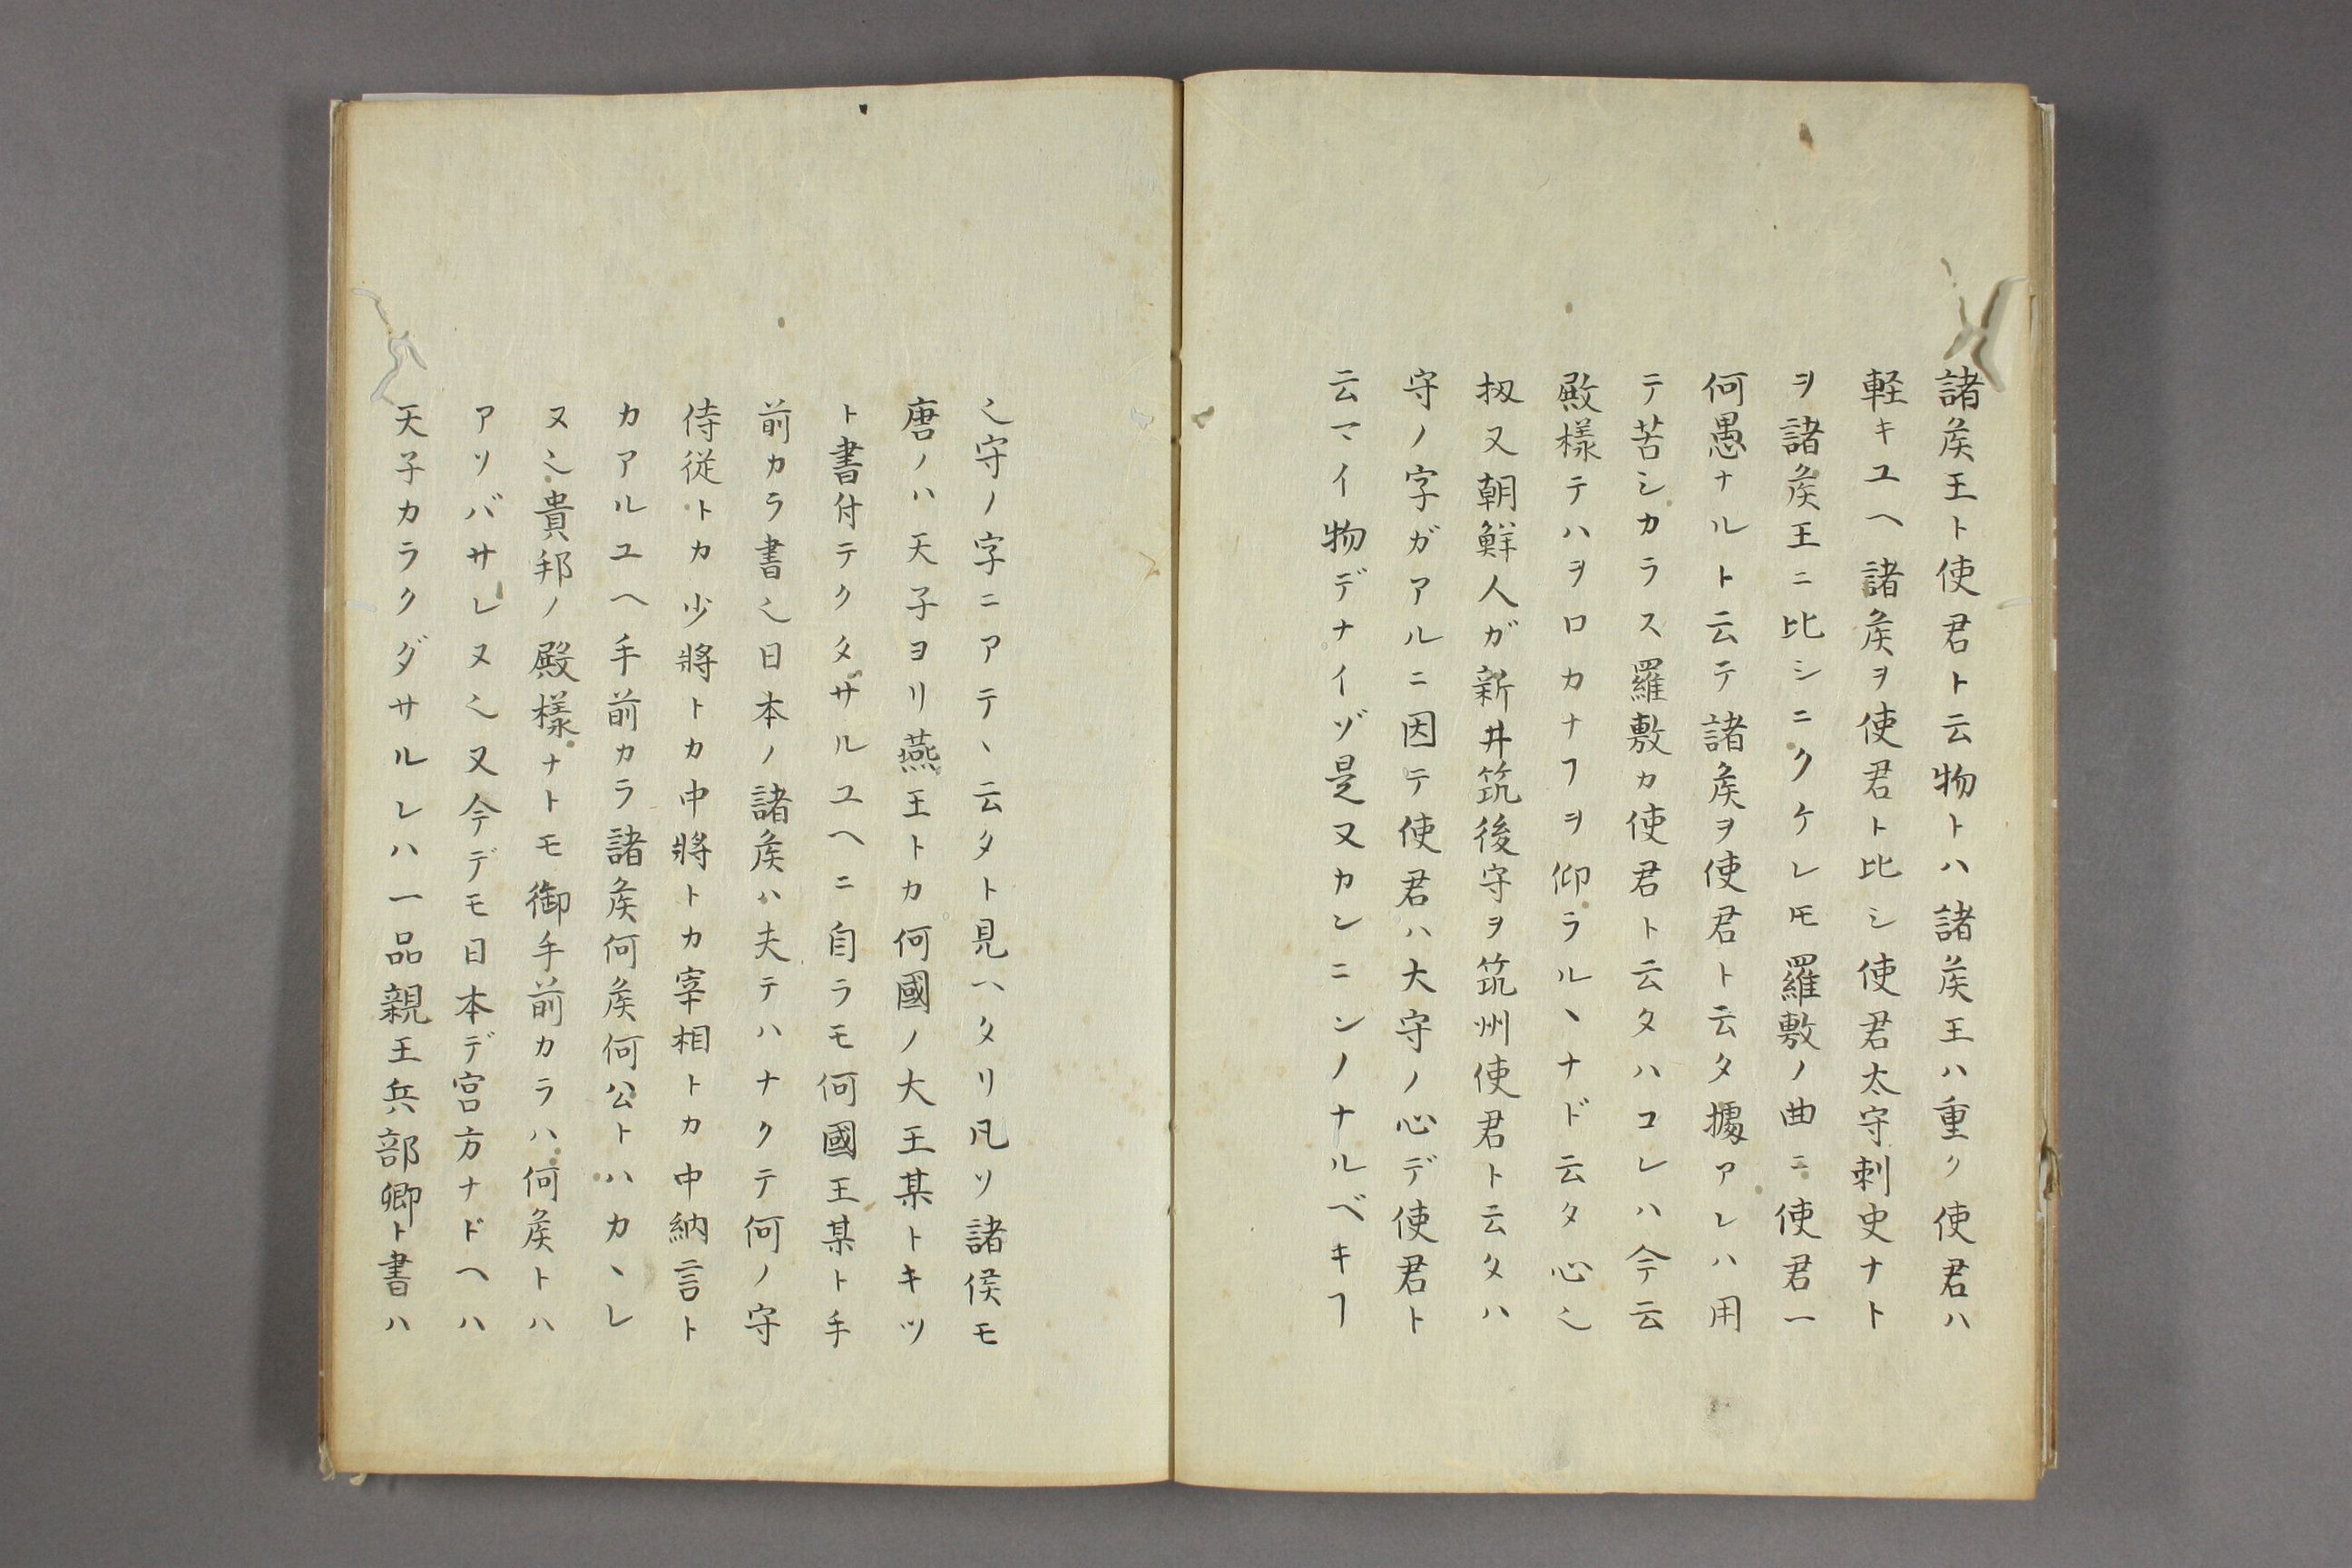 諸矦王ト使君ト云物トハ諸矦王ハ重ク使君ハ
軽キユヘ諸矦ヲ使君ト比シ使君太守刺史ナト
ヲ諸矦王ニ比シニクケレ𪜈羅敷ノ曲ニ使君一
何愚ナルト云テ諸矦ヲ使君ト云タ據アレハ用
テ苦シカラス羅敷カ使君ト云タハコレハ今云
殿様テハヲロカナヿヲ仰ラルヽナド云タ心〻
扨又朝鮮人ガ新井筑後守ヲ筑州使君ト云タハ
守ノ字ガアルニ因テ使君ハ大守ノ心デ使君ト
云マイ物デナイゾ是又カンニンノナルベキヿ
〻守ノ字ニアテヽ云タト見ヘタリ凡ソ諸侯モ
唐ノハ天子ヨリ燕王トカ何國ノ大王某トキツ
ト書付テクタサルユヘニ自ラモ何國王某ト手
前カラ書〻日本ノ諸矦ハ夫テハナクテ何ノ守
侍従トカ少將トカ中將トカ宰相トカ中納言ト
カアルユヘ手前カラ諸矦何矦何公トハカヽレ
ヌ〻貴邦ノ殿様ナトモ御手前カラハ何矦トハ
アソバサレヌ〻又今デモ日本デ宮方ナドヘハ
天子カラクダサルレハ一品親王兵部卿ト書ハ